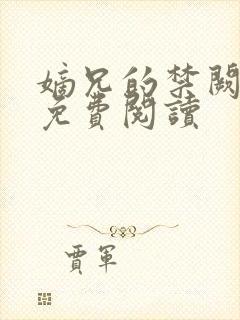 嫡兄的禁闕
免費閱讀
賈軍